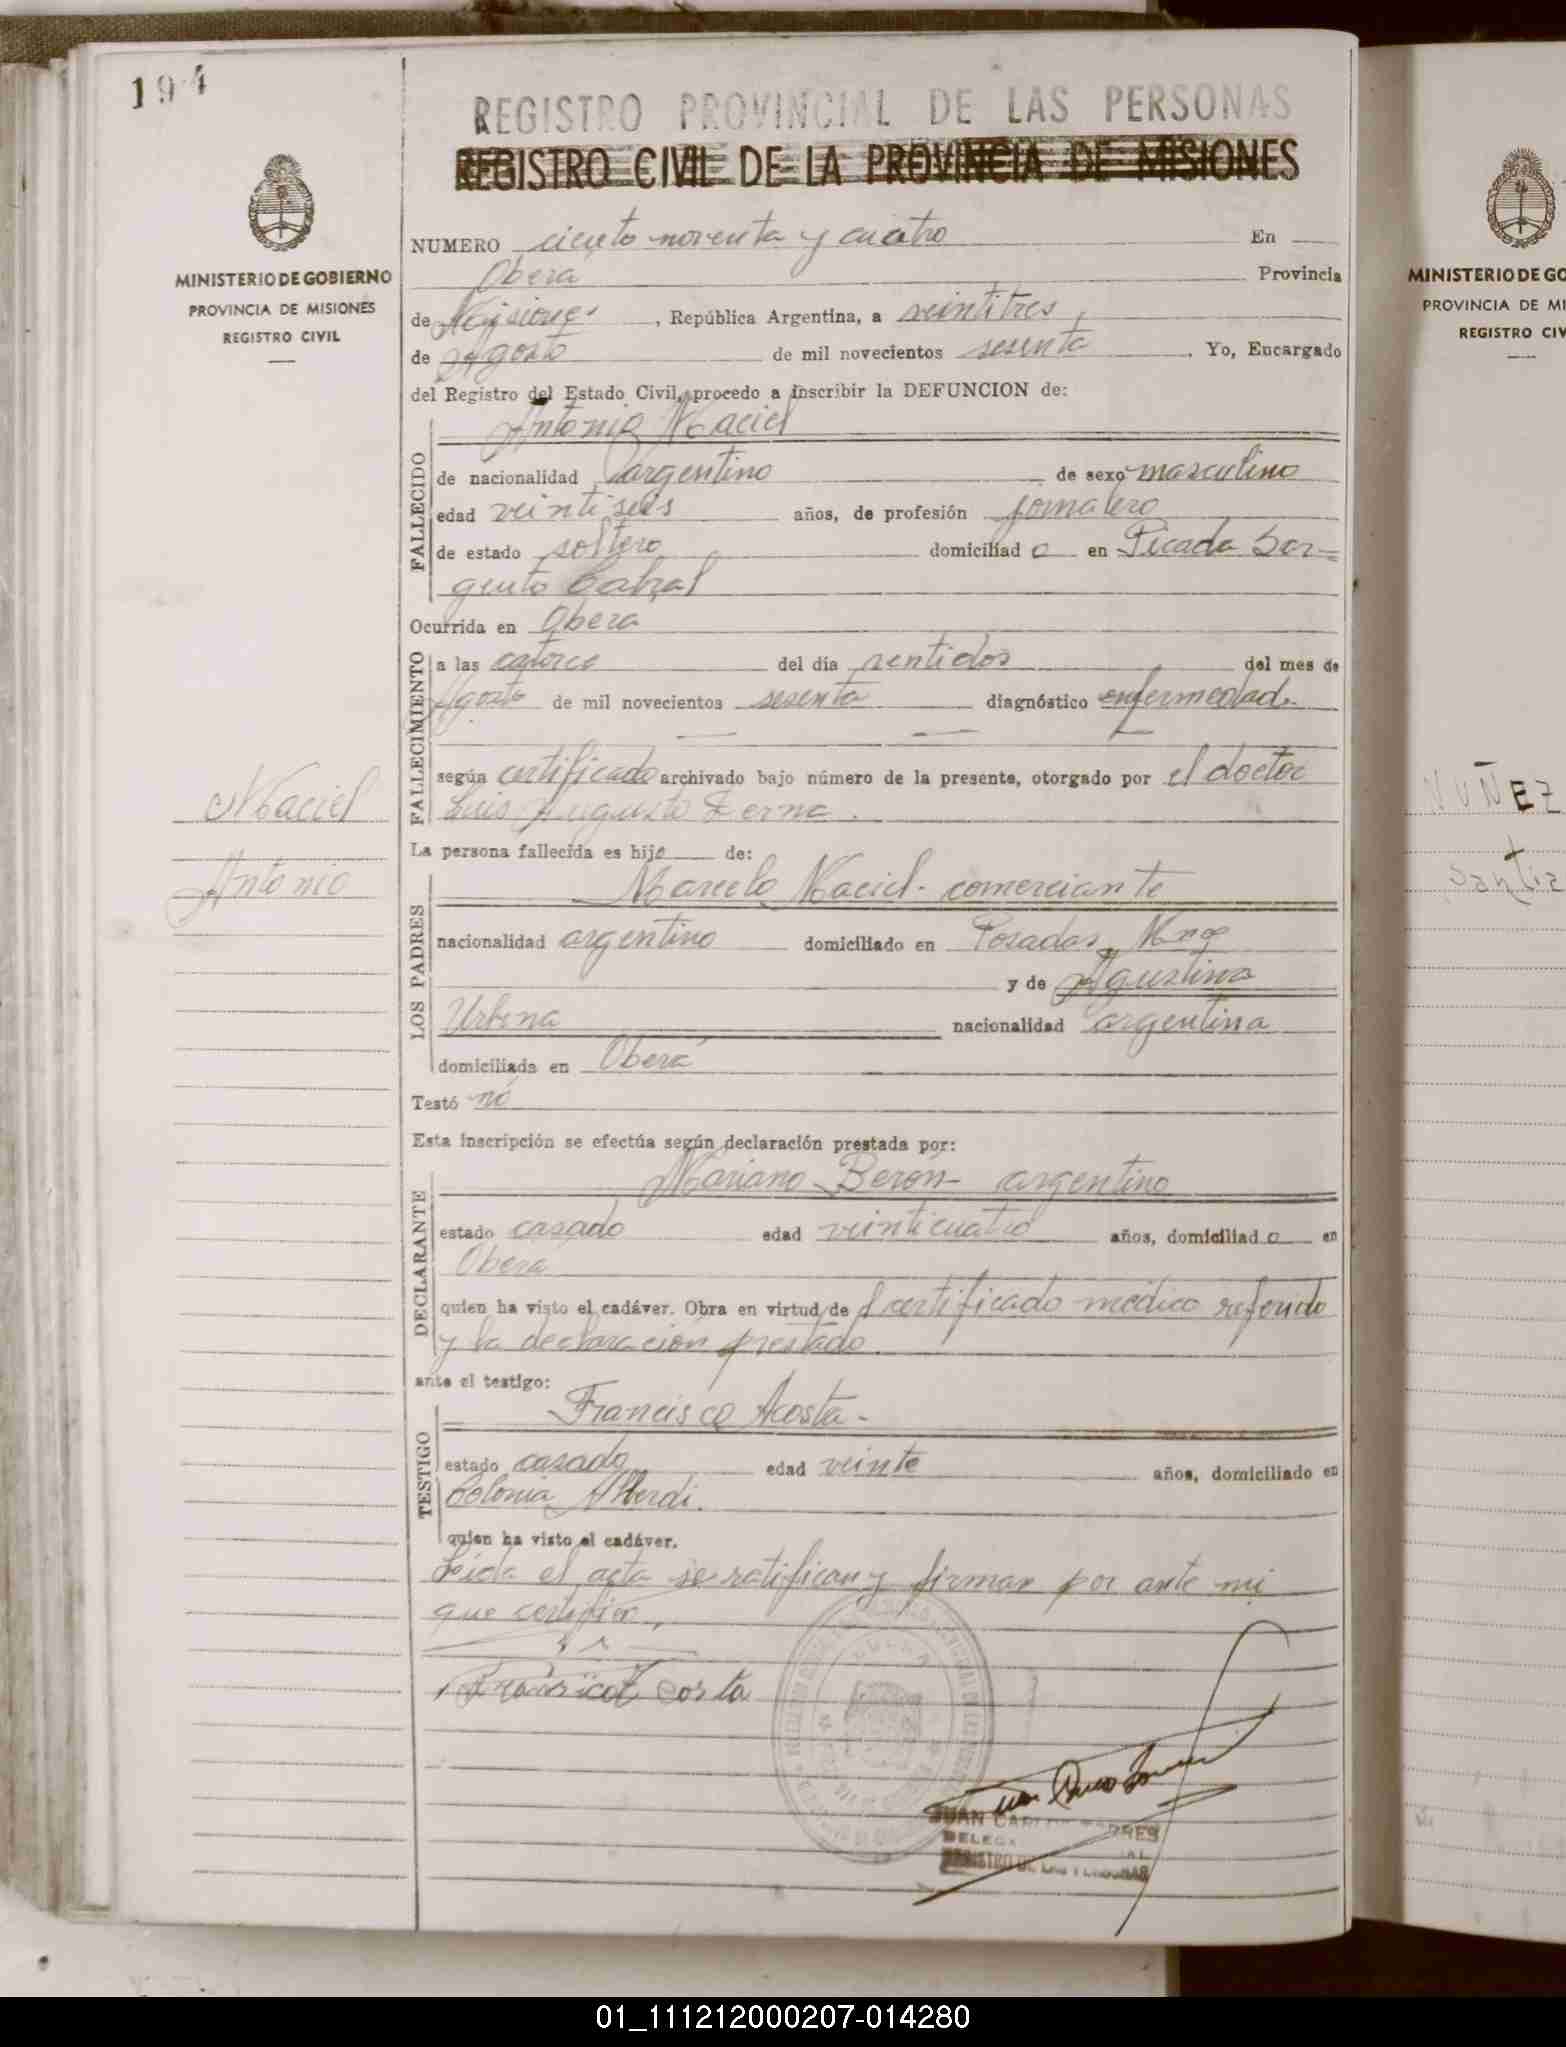 194
REGISTRO PROVINCIAL DE LAS PERSONAS
REGISTRO CIVIL DE LA PROVINCIA DE MISIONES
MINISTERIO DE GOBIERNO
PROVINCIA DE MISIONES
REGISTRO CIVIL
NUMERO ciento noventa y cuatro En
Oberá Provincia
de Misiones, República Argentina, a veintitres
de Agosto de mil novecientos sesenta. Yo, Encargado
del Registro del Estado Civil, procedo a inscribir la DEFUNCION de:
FALLECIDO
Antonio Maciel
de nacionalidad argentino de sexo masculino
edad veintiseis años, de profesión jornalero
de estado soltero domiciliad o en Picada Sar=
gento Cabral
Ocurrida en Obera
FALLECIMIENTO
a las catorce del día ventidos del mes de
Agosto de mil novecientos sesenta diagnóstico enfermedad
según certificado archivado bajo número de la presente, otorgado por el doctor
Luis Augusto
La persona fallecida es hijo de:
Maciel
Antonio
LOS PADRES
Marcelo Maciel - comerciante
nacionalidad argentino domiciliado en Posadas Mnes
y de Agustina
Urbina nacionalidad argentina
domiciliada en Oberá
Testó no
Esta inscripción se efectúa según declaración prestada por:
DECLARANTE
Mariano Berón - argentino
estado casado edad veinticuatro años, domiciliad o en
Obera
quien ha visto el cadáver. Obra en virtud de l certificado medico referido
y la declaración prestado.
ante el testigo:
TESTIGO
Francisco Acosta -
estado casado edad veinte años, domiciliado en
Colonia Alberdi.
quien ha visto el cadáver.
Leida el acta se ratifican y firman por ante mi
que certifico
JUAN CARLOS TORRES
REGISTRO DE LAS PERSONAS
MINISTERIO DE GO
PROVINCIA DE MI
REGISTRO CIV
NUÑEZ
Santia
01_111212000207-014280